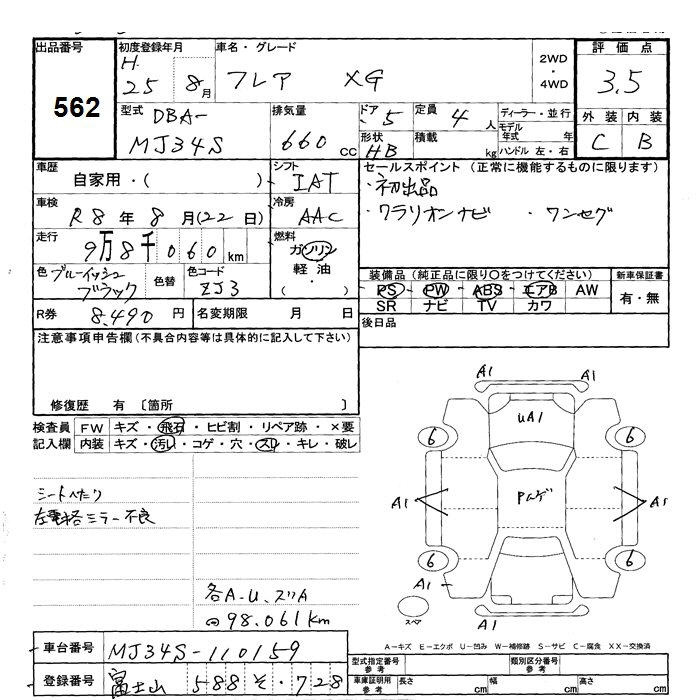 出品番号 初度登録年月 車名・グレード 2WD・4WD 評価点
562 H.25 8月 フレア XG 3.5
型式 DBA- MJ34S 排気量 660 cc ドア 5 定員 4 人 ディーラー・並行 外装 内装
形状 HB 積載 kg モデル年式 年 ハンドル 左・右 C B
車歴 自家用・( ) シフト IAT セールスポイント (正常に機能するものに限ります)
・初出品
車検 R8年8月(22日) 冷房 AAC ・ワラリオンナビ ・ワンセグ
走行 9万8千060km 燃料 ガソリン
軽油
( ・ )
色 ブルーイッシュブラック 色替 色コード ZJ3 装備品(純正品に限り○をつけてください) 新車保証書
PS・PW・ABS・エアB AW 有・無
SR ナビ TV カワ
R券 8,490円 名変期限 月 日 後日品
注意事項申告欄(不具合内容等は具体的に記入して下さい)
修復歴 有 〔箇所 〕
検査員 FW キズ・飛石・ヒビ割・リペア跡・×要
記入欄 内装 キズ・汚レ・コゲ・穴・スレ・キレ・破レ
シートへたり
左電格ミラー不良
各A-U、スリA
98.061km
A1 A1
UA1
6 6
A1 Pムゲ A1
6 6
A1
スペア A1
A-キズ E-エクボ U-凹み W-補修跡 S-サビ C-腐食 XX-交換済
車台番号 MJ34S-110159
登録番号 富士山 588 そ・728
型式指定番号 参考 類別区分番号 参考
車庫証明用 参考 長さ cm 幅 cm 高さ cm